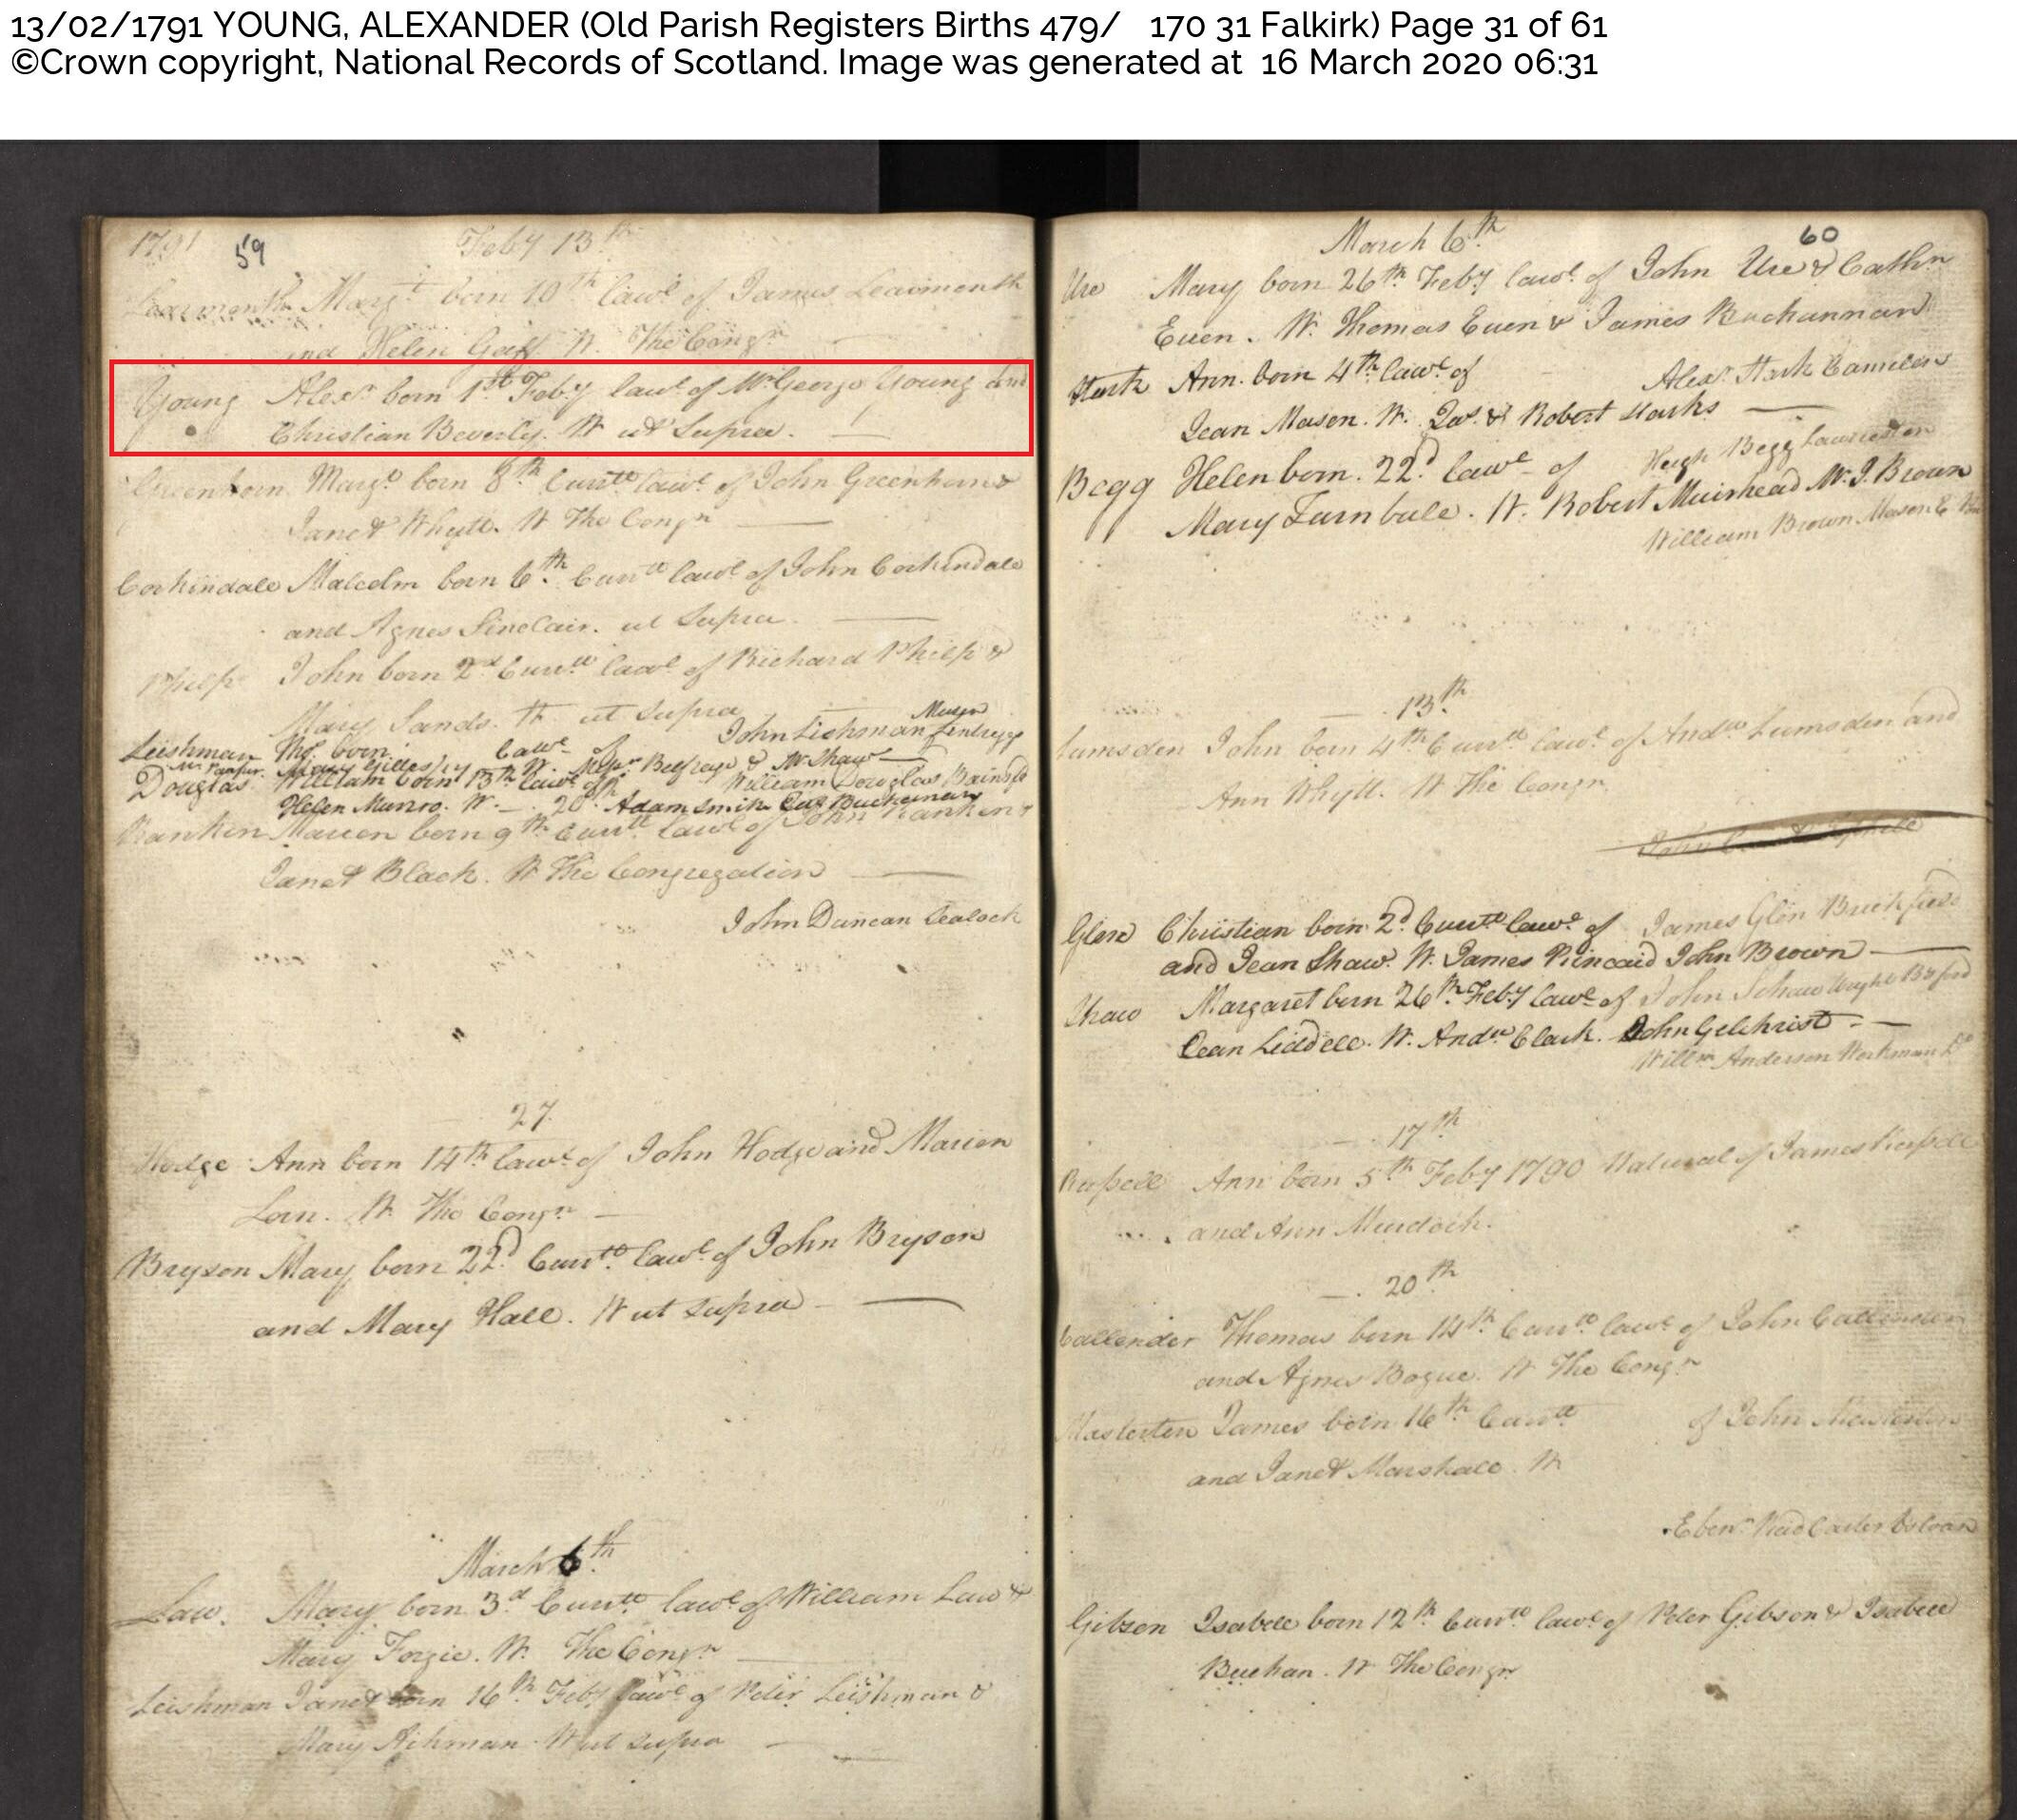 13/02/1791 YOUNG, ALEXANDER (Old Parish Registers Births 479/ 170 31 Falkirk) Page 31 of 61
©Crown copyright, National Records of Scotland. Image was generated at 16 March 2020 06:31
1791 59 Feby 13th
Learmonth Margt born 10th lawl of James Learmonth
and Helen Goff W. The Congn
Young Alexr born 1st Feby lawl of Mr George Young and
Christian Beverly. W ut Supra.
Greenhorn Margt born 8th Curtt lawl of John Greenhorn &
Janet Whytt. W The Congn
Corkindale Malcolm born 6th Curtt lawl of John Corkindale
and Agnes Sinclair. ut Supra
Philp John born 2d Curtt lawl of Richard Philp &
Mary Sands. W. ut Supra
John Lishman
Leishman Thos born lawl of
Mary Gillespy W. Messrs Belfrage & Mr Shaw
Douglas William born 13th lawl of William Douglas
Helen Munro. W. 20. Adam Smith Buchanan
Rankin Marion born 9th Curtt lawl of John Rankin &
Janet Black. W The Congregation
John Duncan Sealock
27.
Hodge Ann born 14th lawl of John Hodge and Marion
Lorn. W. The Congn
Bryson Mary born 22d Curtt lawl of John Bryson
and Mary Hall. W ut Supra
March 6th
Law. Mary born 3d Curtt lawl of William Law &
Mary Forgie. W. The Congn
Leishman Janet born 16th Feby lawl of Peter Leishman &
Mary Aikman W ut Supra
March 6th 60
Ure Mary born 26th Feby lawl of John Ure & Cathn
Euen. W. Thomas Euen & James Buchannan
Stark Ann. born 4th lawl of Alexr Stark Camelon
Jean Mason. W. Jas & Robert Starks
Begg Helen born. 22d lawl of Hugh Begg Lauriston
Mary Turnbull. W. Robert Muirhead Mr J. Brown
William Brown Mason
13th
Lumsden John born 4th Curtt lawl of Andw Lumsden and
Ann Whytt. W The Congn
Glen Christian born 2d Curtt lawl of James Glen
and Jean Shaw. W. James Pincaid John Brown
Shaw Margaret born 26th Feby lawl of John Schaw Wright
Jean Liddell. W. Andw Clark. John Gilchrist
Willm Anderson Workman
17th
Russell Ann born 5th Feby 1790 Natural of James Russell
and Ann Murdoch.
20th
Callender Thomas born 14th Curtt lawl of John Callender
and Agnes Bogue. W The Congn
Masterton James born 16th Curtt of John Masterton
and Janet Marshall. W
Ebenr
Gibson Isabell born 12th Curtt lawl of Peter Gibson & Isabell
Buchan. W The Congn